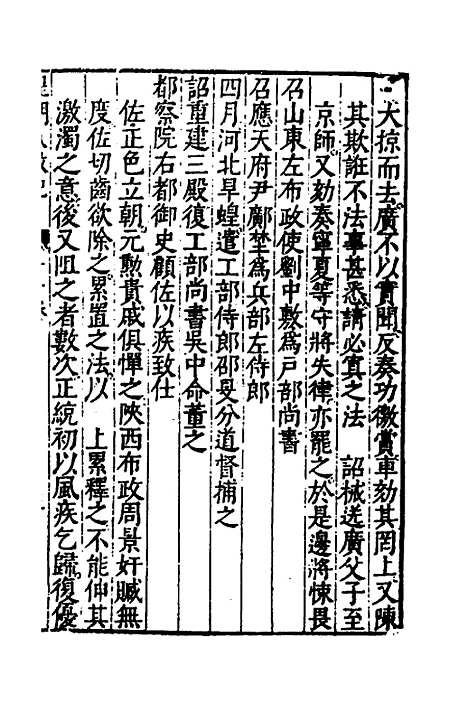 大掠而去廣不以實聞反奏功徼賞車劾其罔上又陳
其欺誑不法事甚悉請必寘之法　詔械送廣父子至
京師又劾奏寧夏等守將失律亦罷之於是邊將悚畏
召山東左布政使劉中敷爲戶部尚書
召應天府尹鄺埜爲兵部左侍郎
四月河北旱蝗遣工部侍郎邵旻分道督捕之
詔重建三殿復工部尚書吳中命董之
都察院右都御史顧佐以疾致仕
佐正色立朝元勲貴戚俱憚之陝西布政周景奸贓無
度佐切齒欲除之累置之法以　上累釋之不能伸其
激濁之意後又阻之者數次正統初以風疾乞歸復優